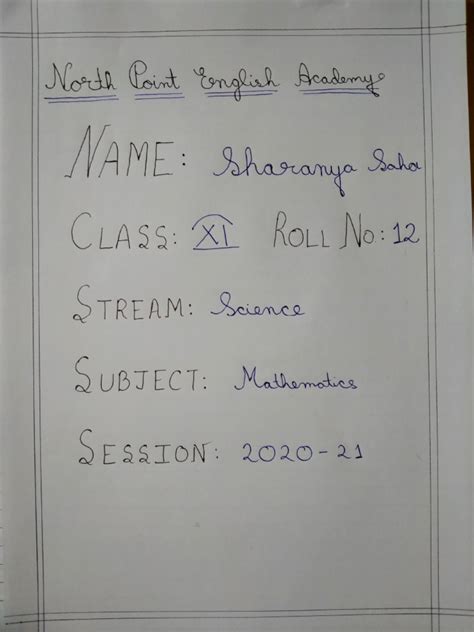 North Point English Academy
NAME: Sharanya Saha
CLASS: XI ROLL NO: 12
STREAM: Science
SUBJECT: Mathematics
SESSION: 2020-21